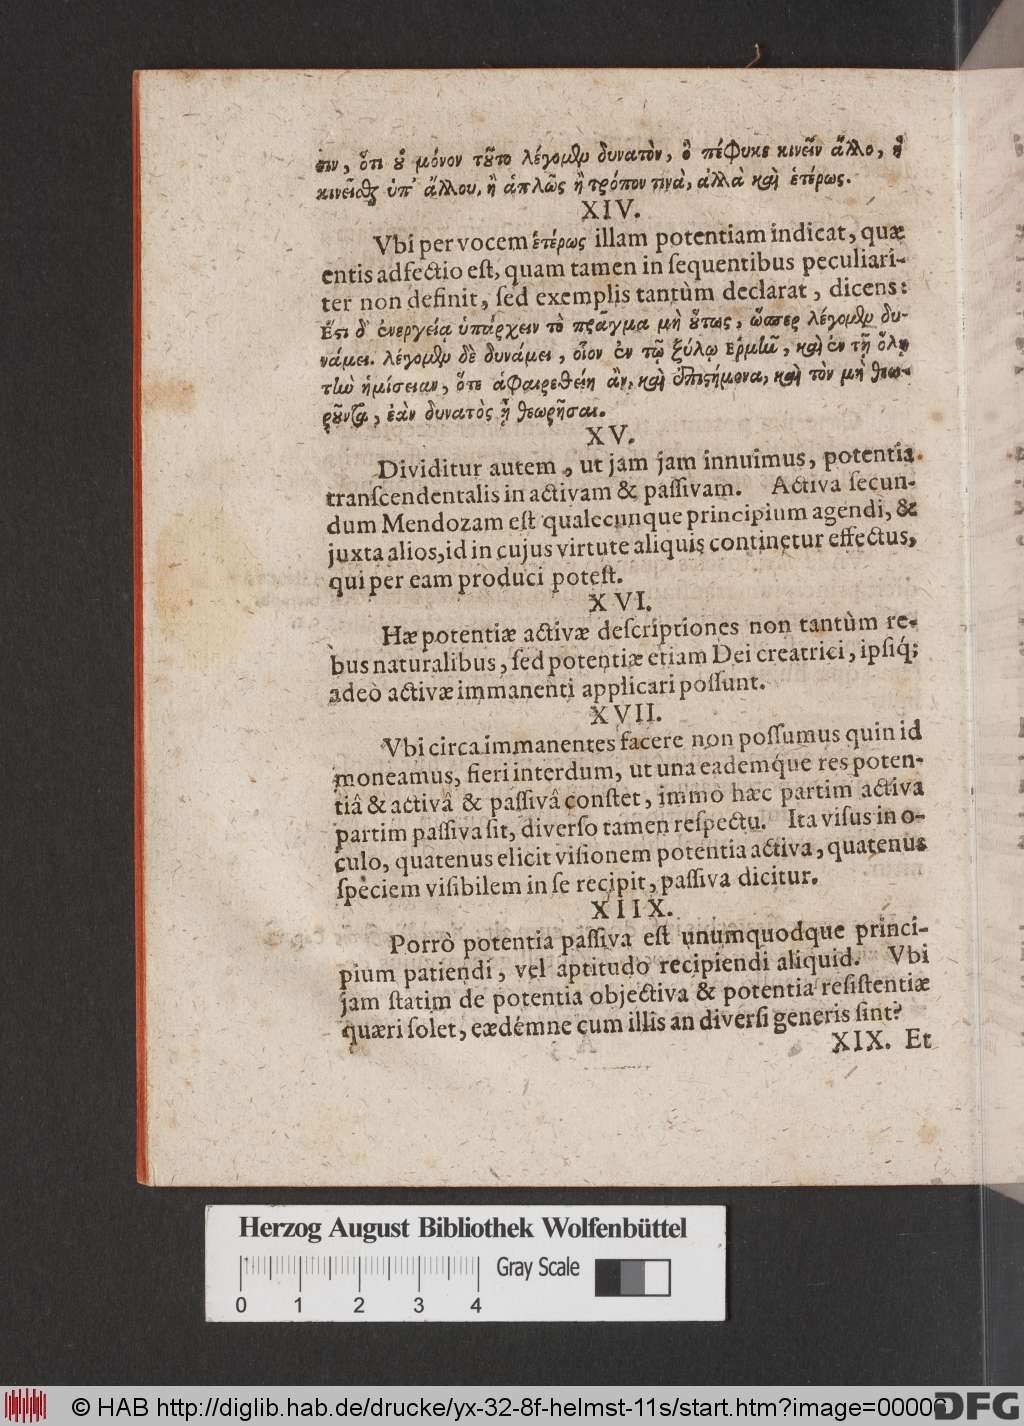 σιν, ὅτι οὐ μόνον τοῦτο λέγομεν δυνατὸν, ὃ πέφυκε κινεῖν ἄλλο, ἢ
κινεῖσθαι ὑπ' ἄλλου, ἢ ἁπλῶς ἢ τρόπον τινὰ, ἀλλὰ καὶ ἑτέρως.
XIV.
Vbi per vocem ἑτέρως illam potentiam indicat, quæ
entis adfectio eſt, quam tamen in ſequentibus peculiari-
ter non definit, ſed exemplis tantùm declarat, dicens:
Ἔστι δ' ἐνεργεία ὑπάρχειν τὸ πρᾶγμα μὴ οὕτως, ὥσπερ λέγομεν δυ-
νάμει. λέγομεν δὲ δυνάμει, οἷον ἐν τῷ ξύλῳ Ἑρμῆν, καὶ ἐν τῇ ὅλῃ
τὴν ἡμίσειαν, ὅτι ἀφαιρεθείη ἂν, καὶ ἐπιστήμονα, καὶ τὸν μὴ θεω-
ροῦντα, ἐὰν δυνατὸς ᾖ θεωρῆσαι.
XV.
Dividitur autem, ut jam jam innuimus, potentia
tranſcendentalis in activam & paſſivam. Activa ſecun-
dum Mendozam eſt qualecunque principium agendi, &
juxta alios, id in cujus virtute aliquis continetur effectus,
qui per eam produci poteſt.
XVI.
Hæ potentiæ activæ deſcriptiones non tantùm re-
bus naturalibus, ſed potentiæ etiam Dei creatrici, ipſiq́;
adeò activæ immanenti applicari poſſunt.
XVII.
Vbi circa immanentes facere non poſſumus quin id
moneamus, fieri interdum, ut una eademq́ue res poten-
tiâ & activâ & paſſivâ conſtet, immo hæc partim activa
partim paſſiva ſit, diverſo tamen reſpectu. Ita viſus in o-
culo, quatenus elicit viſionem potentia activa, quatenus
ſpeciem viſibilem in ſe recipit, paſſiva dicitur.
XIIX.
Porrò potentia paſſiva eſt unumquodque princi-
pium patiendi, vel aptitudo recipiendi aliquid. Vbi
jam ſtatim de potentia objectiva & potentia reſiſtentiæ
quæri ſolet, eædémne cum illis an diverſi generis ſint?
XIX. Et
Herzog August Bibliothek Wolfenbüttel
Gray Scale
0 1 2 3 4
© HAB http://diglib.hab.de/drucke/yx-32-8f-helmst-11s/start.htm?image=00006
DFG